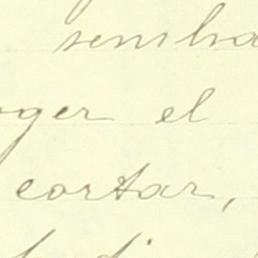 semba
oger el
cortar,